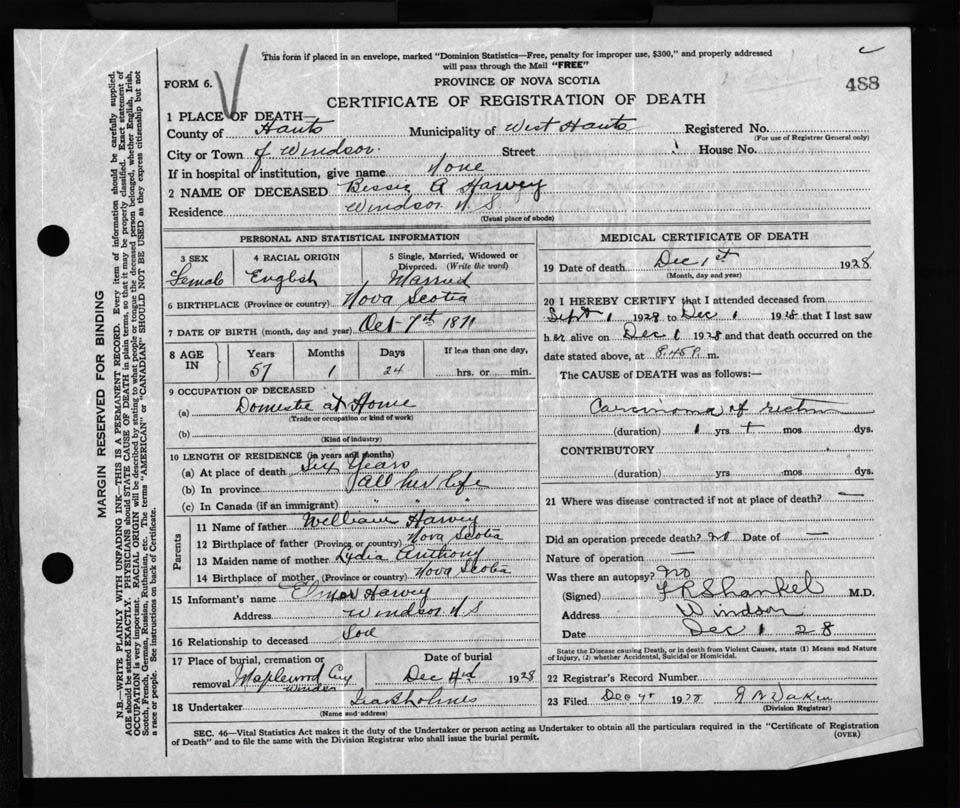 This form if placed in an envelope, marked "Dominion Statistics—Free, penalty for improper use, $300," and properly addressed
will pass through the Mail "FREE"
FORM 6.
PROVINCE OF NOVA SCOTIA
488
CERTIFICATE OF REGISTRATION OF DEATH
1 PLACE OF DEATH—
County of Hants Municipality of West Hants Registered No.
(For use of Registrar General only)
City or Town of Windsor. Street House No.
If in hospital of institution, give name None
2 NAME OF DECEASED Bessie A Harvey
Residence Windsor N S
(Usual place of abode)
PERSONAL AND STATISTICAL INFORMATION
3 SEX
Female
4 RACIAL ORIGIN
English
5 Single, Married, Widowed or
Divorced. (Write the word)
Married
6 BIRTHPLACE (Province or country) Nova Scotia
7 DATE OF BIRTH (month, day and year) Oct 7th 1871
8 AGE IN
Years Months Days If less than one day,
57 1 24 hrs. or min.
9 OCCUPATION OF DECEASED
(a) Domestic at Home
(Trade or occupation or kind of work)
(b)
(Kind of industry)
10 LENGTH OF RESIDENCE (in years and months)
(a) At place of death Six Years
(b) In province All her life
(c) In Canada (if an immigrant) " " "
Parents
11 Name of father William Harvey
12 Birthplace of father (Province or country) Nova Scotia
13 Maiden name of mother Lydia Anthony
14 Birthplace of mother (Province or country) Nova Scotia
15 Informant's name Elmer Harvey
Address Windsor N S
16 Relationship to deceased Son
17 Place of burial, cremation or
removal Maplewood Cey
Windsor
Date of burial
Dec 4rd 1928
18 Undertaker Ira Sholmes
(Name and address)
MEDICAL CERTIFICATE OF DEATH
19 Date of death Dec 1st 1928
(Month, day and year)
20 I HEREBY CERTIFY that I attended deceased from
Sept 1 1928 to Dec 1 1928 that I last saw
h er alive on Dec 1 1928 and that death occurred on the
date stated above, at 8.45 P. m.
The CAUSE of DEATH was as follows:—
Carcinoma of rectum
(duration) 1 yrs + mos dys.
CONTRIBUTORY
(duration) yrs mos dys.
21 Where was disease contracted if not at place of death? —
Did an operation precede death? No Date of —
Nature of operation —
Was there an autopsy? No
(Signed) Shankel M.D.
Address Windsor
Date Dec 1 28
State the Disease causing Death, or in death from Violent Causes, state (1) Means and Nature
of Injury, (2) whether Accidental, Suicidal or Homicidal.
22 Registrar's Record Number
23 Filed Dec 1928
(Division Registrar)
SEC. 46—Vital Statistics Act makes it the duty of the Undertaker or person acting as Undertaker to obtain all the particulars required in the "Certificate of Registration
of Death" and to file the same with the Division Registrar who shall issue the burial permit.
(OVER)
MARGIN RESERVED FOR BINDING
N.B.—WRITE PLAINLY WITH UNFADING INK—THIS IS A PERMANENT RECORD. Every item of information should be carefully supplied.
AGE should be stated EXACTLY. PHYSICIANS should STATE CAUSE OF DEATH in plain terms, so that it may be properly classified. Exact statement of
OCCUPATION is very important. RACIAL ORIGIN will be described by stating to what people or tongue the deceased person belonged, whether English, Irish,
Scotch, French, German, Russian, Ruthenian, etc. The terms "AMERICAN" or "CANADIAN" SHOULD NOT BE USED as they express citizenship but not
a race or people. See instructions on back of Certificate.